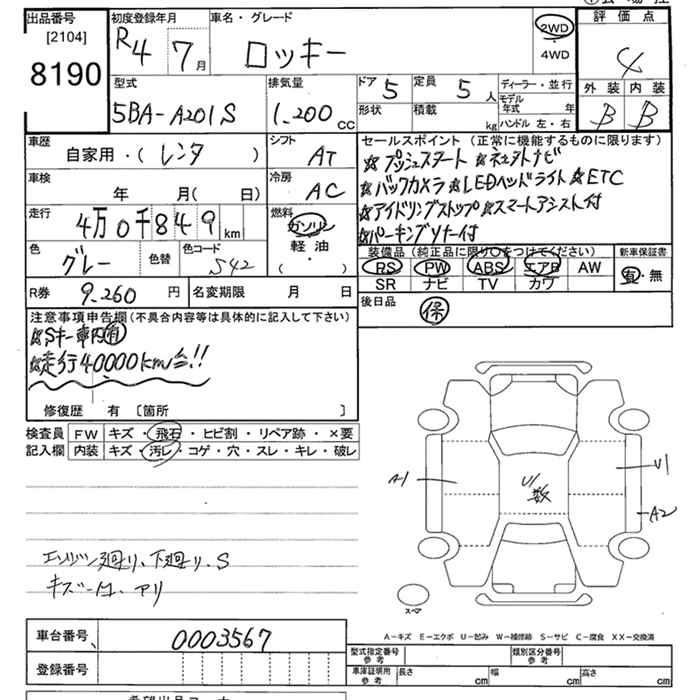 出品番号 初度登録年月 車名・グレード 評価点
[2104] R4 7月 ロッキー 2WD 4
8190 ・
4WD
外装 内装
型式 排気量 ドア 5 定員 5人 ディーラー・並行 B B
5BA-A201S 1,200cc 形状 積載 kg モデル年式 年
ハンドル 左・右
車歴 シフト セールスポイント (正常に機能するものに限ります)
自家用・(レンタ) AT ☆プッシュスタート ☆ネットナビ
車検 冷房 ☆バックカメラ ☆LEDヘッドライト ☆ETC
年 月(日) AC ☆アイドリングストップ ☆スマートアシスト付
走行 燃料 ☆パーキングソナー付
4万0千849km ガソリン
色 色替 色コード 軽油 装備品 (純正品に限り○をつけてください) 新車保証書
グレー S42 ・( ) PS PW ABS エアB AW 有・無
SR ナビ TV カワ
R券 9,260円 名変期限 月 日 後日品 保
注意事項申告欄(不具合内容等は具体的に記入して下さい)
☆Sキー車内有
☆走行40000km台!!
修復歴 有 [箇所 ]
検査員 FW キズ・飛石・ヒビ割・リペア跡・×要
記入欄 内装 キズ・汚レ・コゲ・穴・スレ・キレ・破レ
A1 U1 U1
数 A2
エンジン廻り、下廻り、S
キズ アリ
スペア
A-キズ E-エクボ U-凹み W-補修跡 S-サビ C-腐食 XX-交換済
車台番号 0003567
型式指定番号 参考 類別区分番号 参考
登録番号 車庫証明用 参考 長さ cm 幅 cm 高さ cm